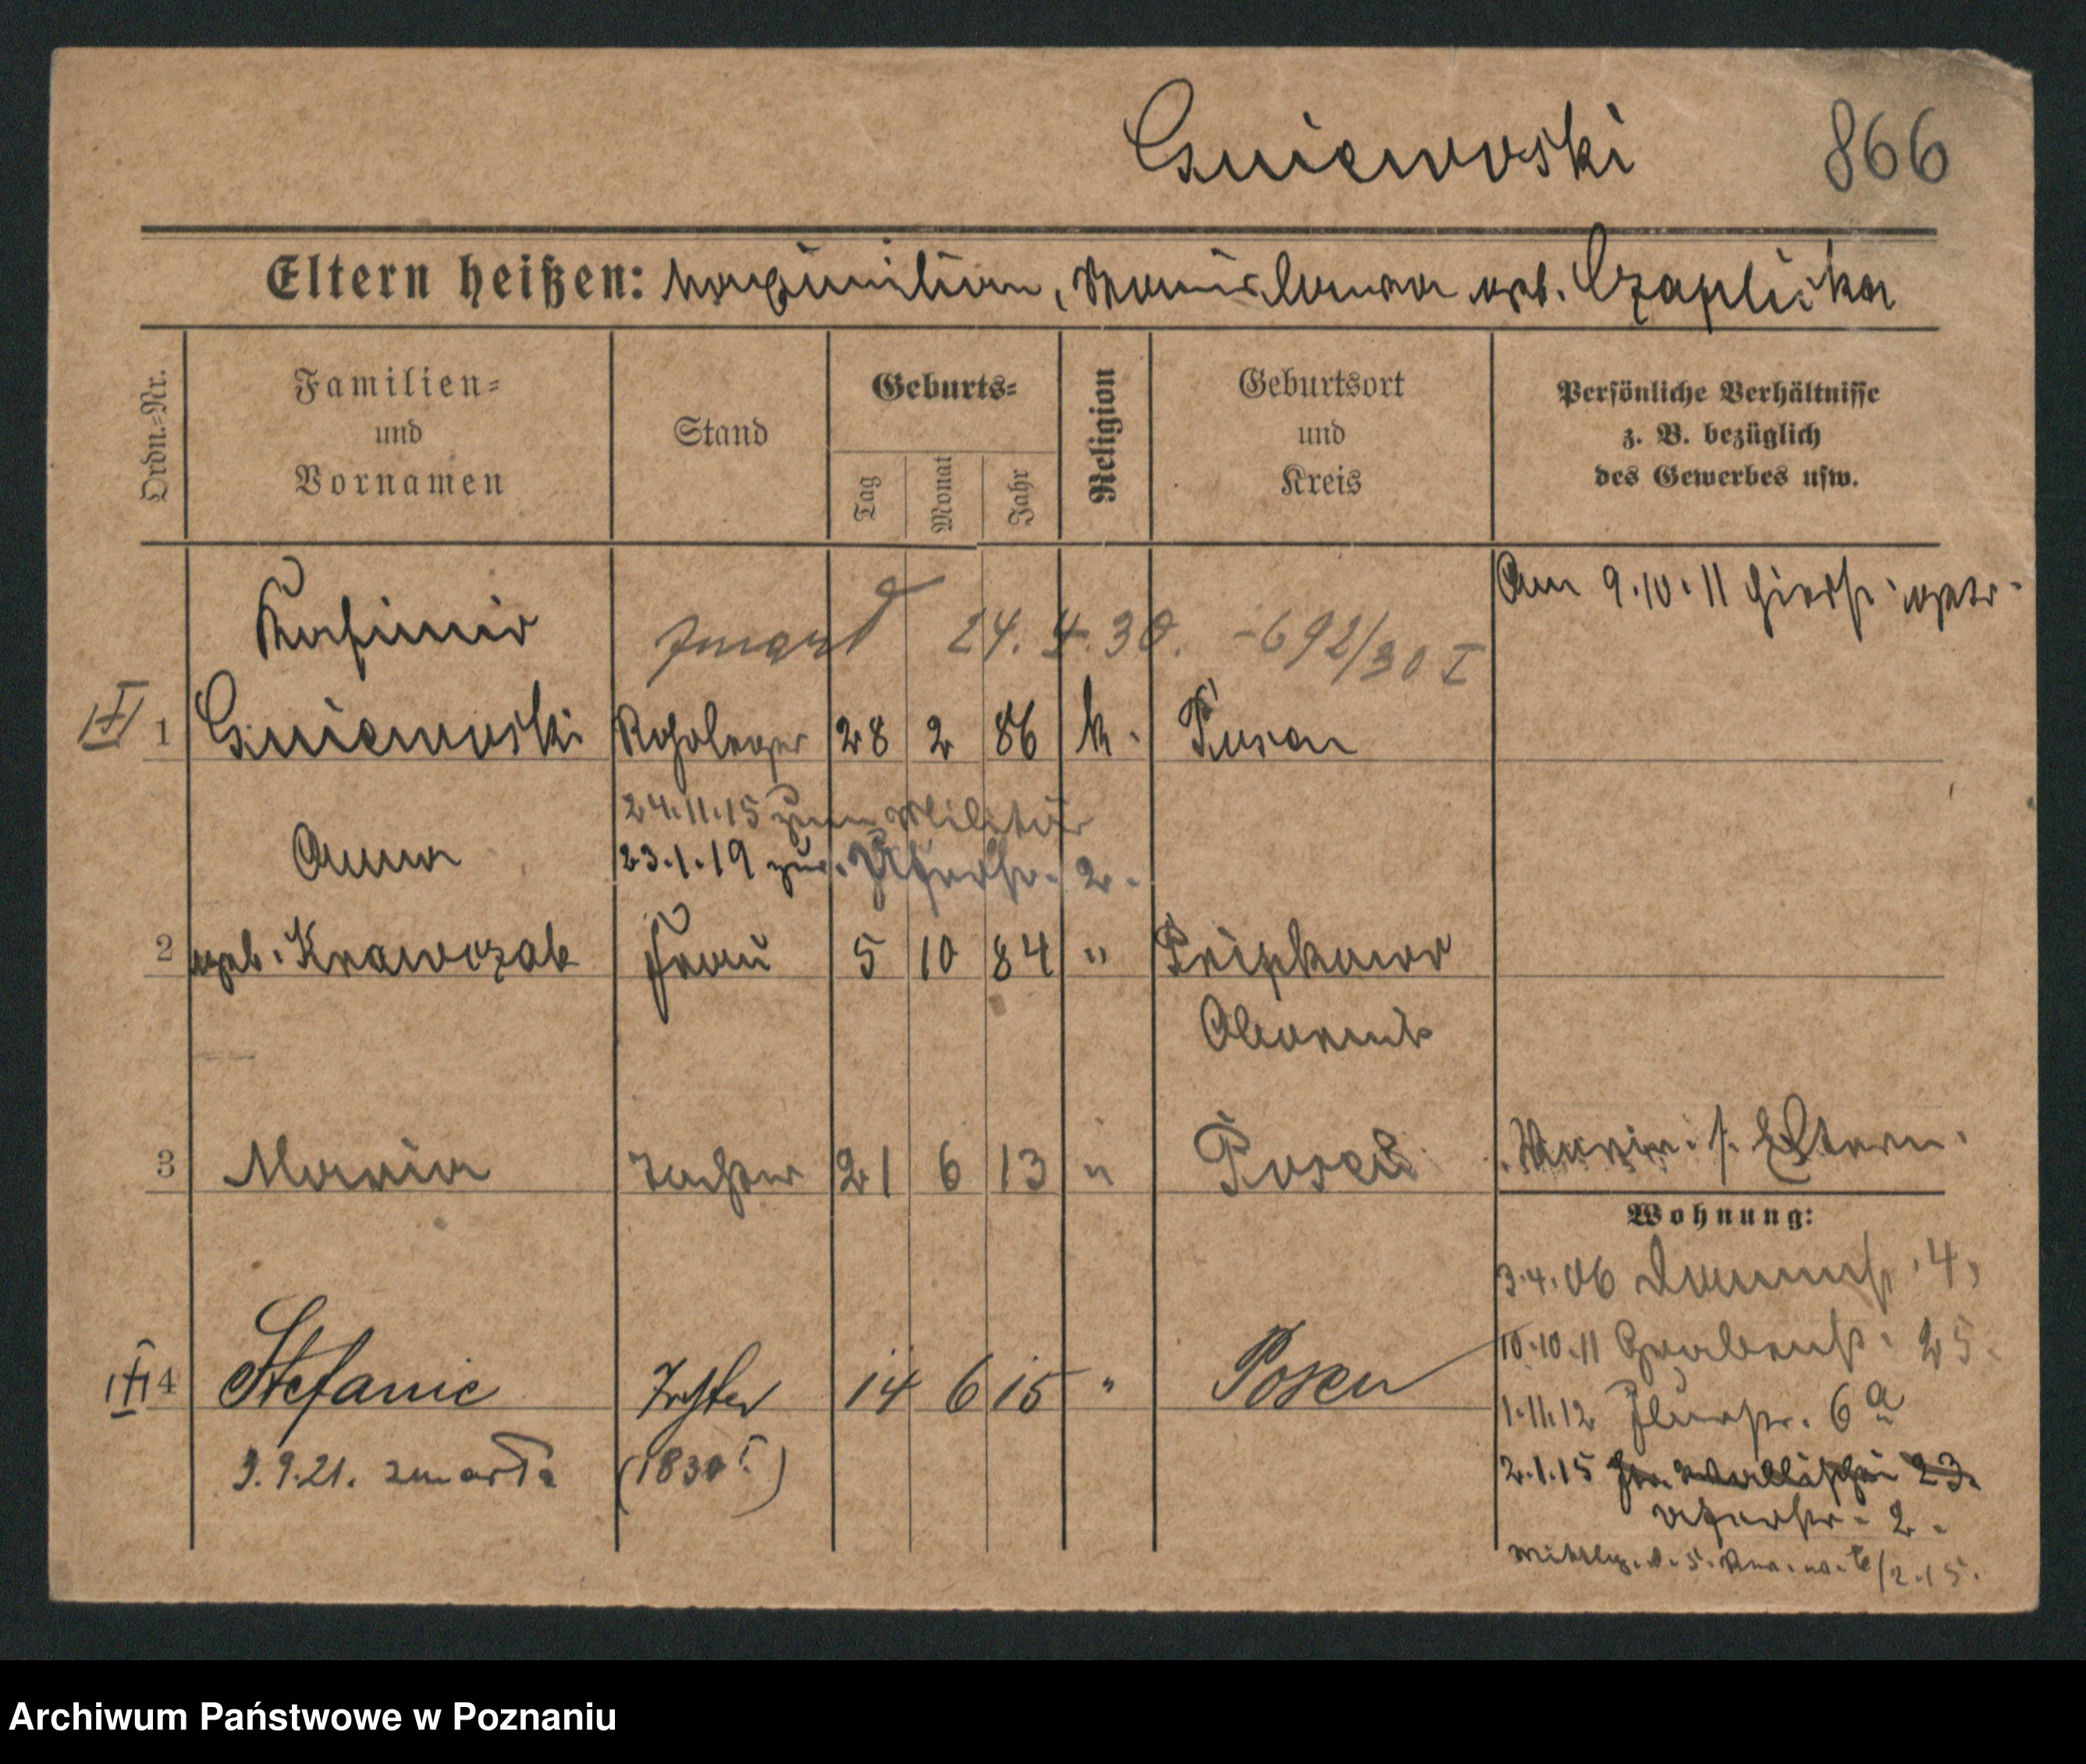 Gniewoski
866
Eltern heißen: Maximilian, Stanislawa geb. Czaplicka
Ordn.=Nr.
Familien=
und
Vornamen
Stand
Geburts=
Tag
Monat
Jahr
Religion
Geburtsort
und
Kreis
Persönliche Verhältnisse
z. B. bezüglich
des Gewerbes usw.
Am 9.10.11 hierher
Kasimir
zmarł 24. 4. 30. -692/30 I
1 Gniewoski Rohrleger 28 2 86 k. Posen
24.11.15 zum Militär
Anna 23.1.19 zur. Uferstr. 2.
2 geb. Krawczak Frau 5 10 84 "
Obornik
3 Maria Tochter 21 6 13 " Posen s. Eltern.
Wohnung:
3.4.06 4,
10.10.11 Grabenstr. 25.
III 4 Stefanie Tochter 14 6 15 " Posen
1.11.12 Flurstr. 6a
3.9.21. zmarła (1830 I.)
2.1.15 Wallischei 23.
Uferstr. 2.
/2.15.
Archiwum Państwowe w Poznaniu